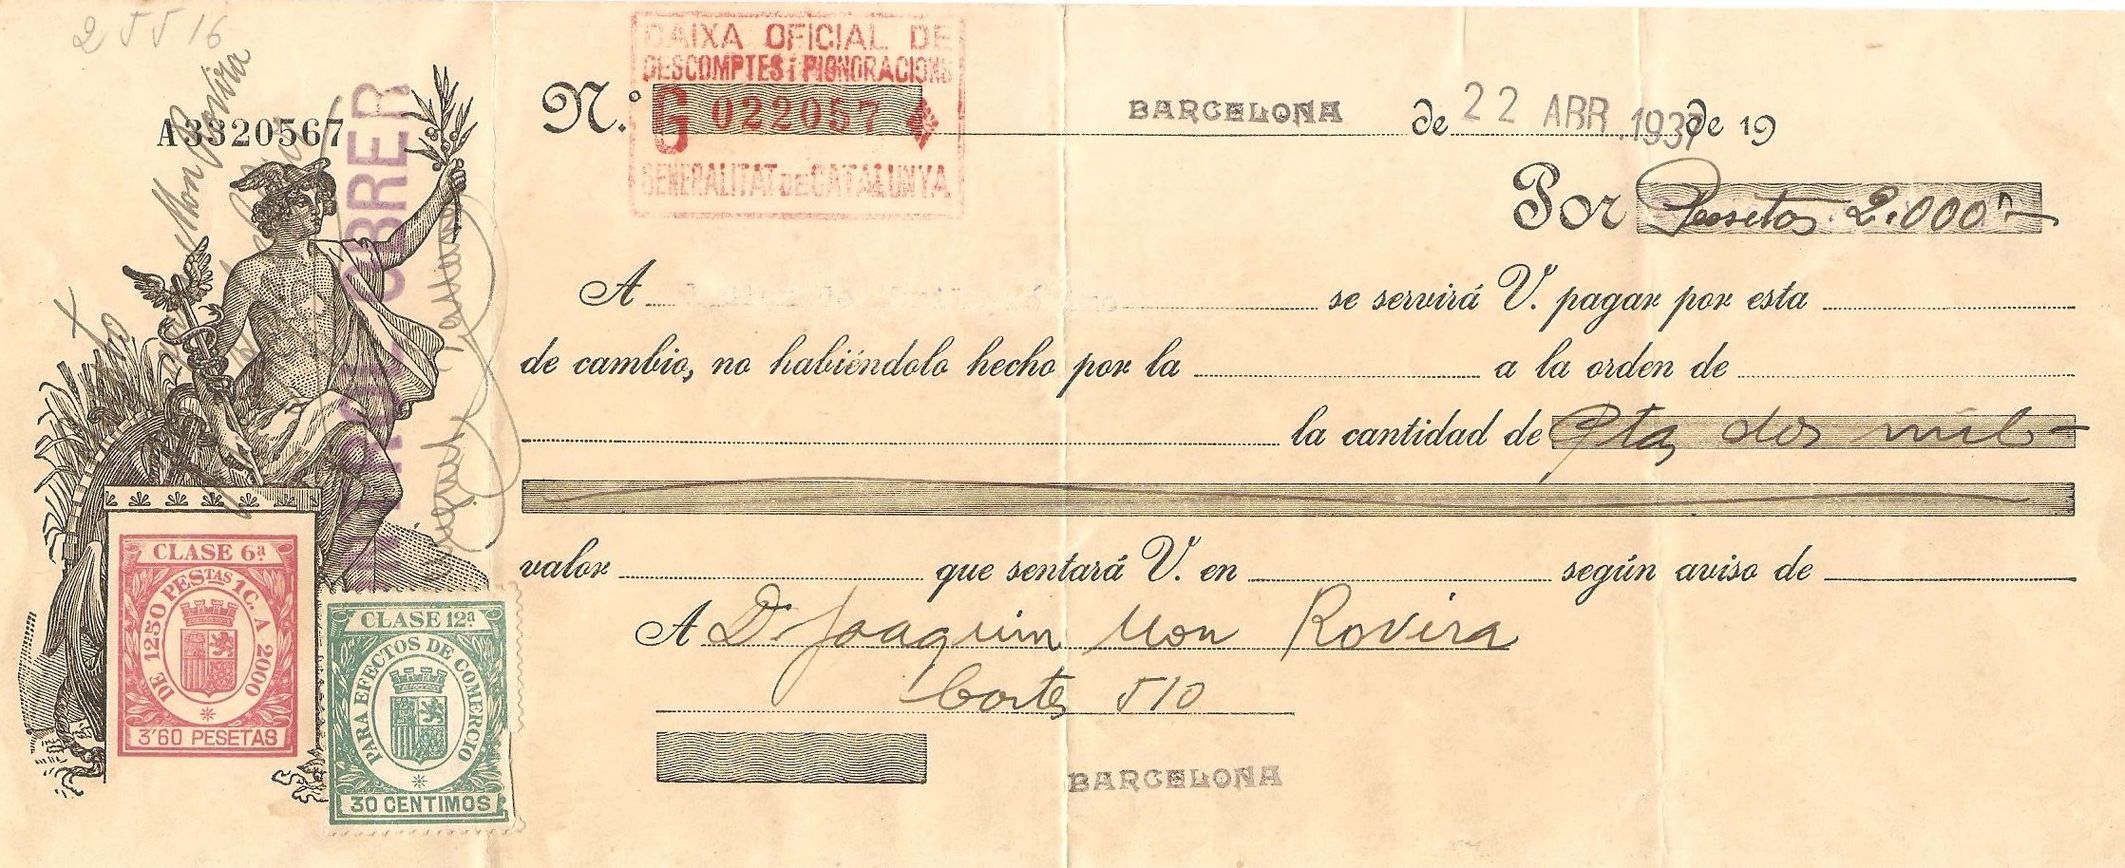 2 5 5 16
A3320567
CAIXA OFICIAL DE
DESCOMPTES i PIGNORACIONS
N.º G 022057
GENERALITAT DE CATALUNYA
BARCELONA de 22 ABR. 1937 de 19
Por Pesetas 2.000"-
A se servirá V. pagar por esta
de cambio, no habiéndolo hecho por la a la orden de
la cantidad de Ptas dos mil -
valor que sentará V. en según aviso de
A D. Joaquim Mon Rovira
Cortes 510
BARCELONA
CLASE 6ª
DE 1250 PESTAS 1C. A 2000
3'60 PESETAS
CLASE 12ª
PARA EFECTOS DE COMERCIO
30 CENTIMOS
OBRER
Mon Rovira
Miguel